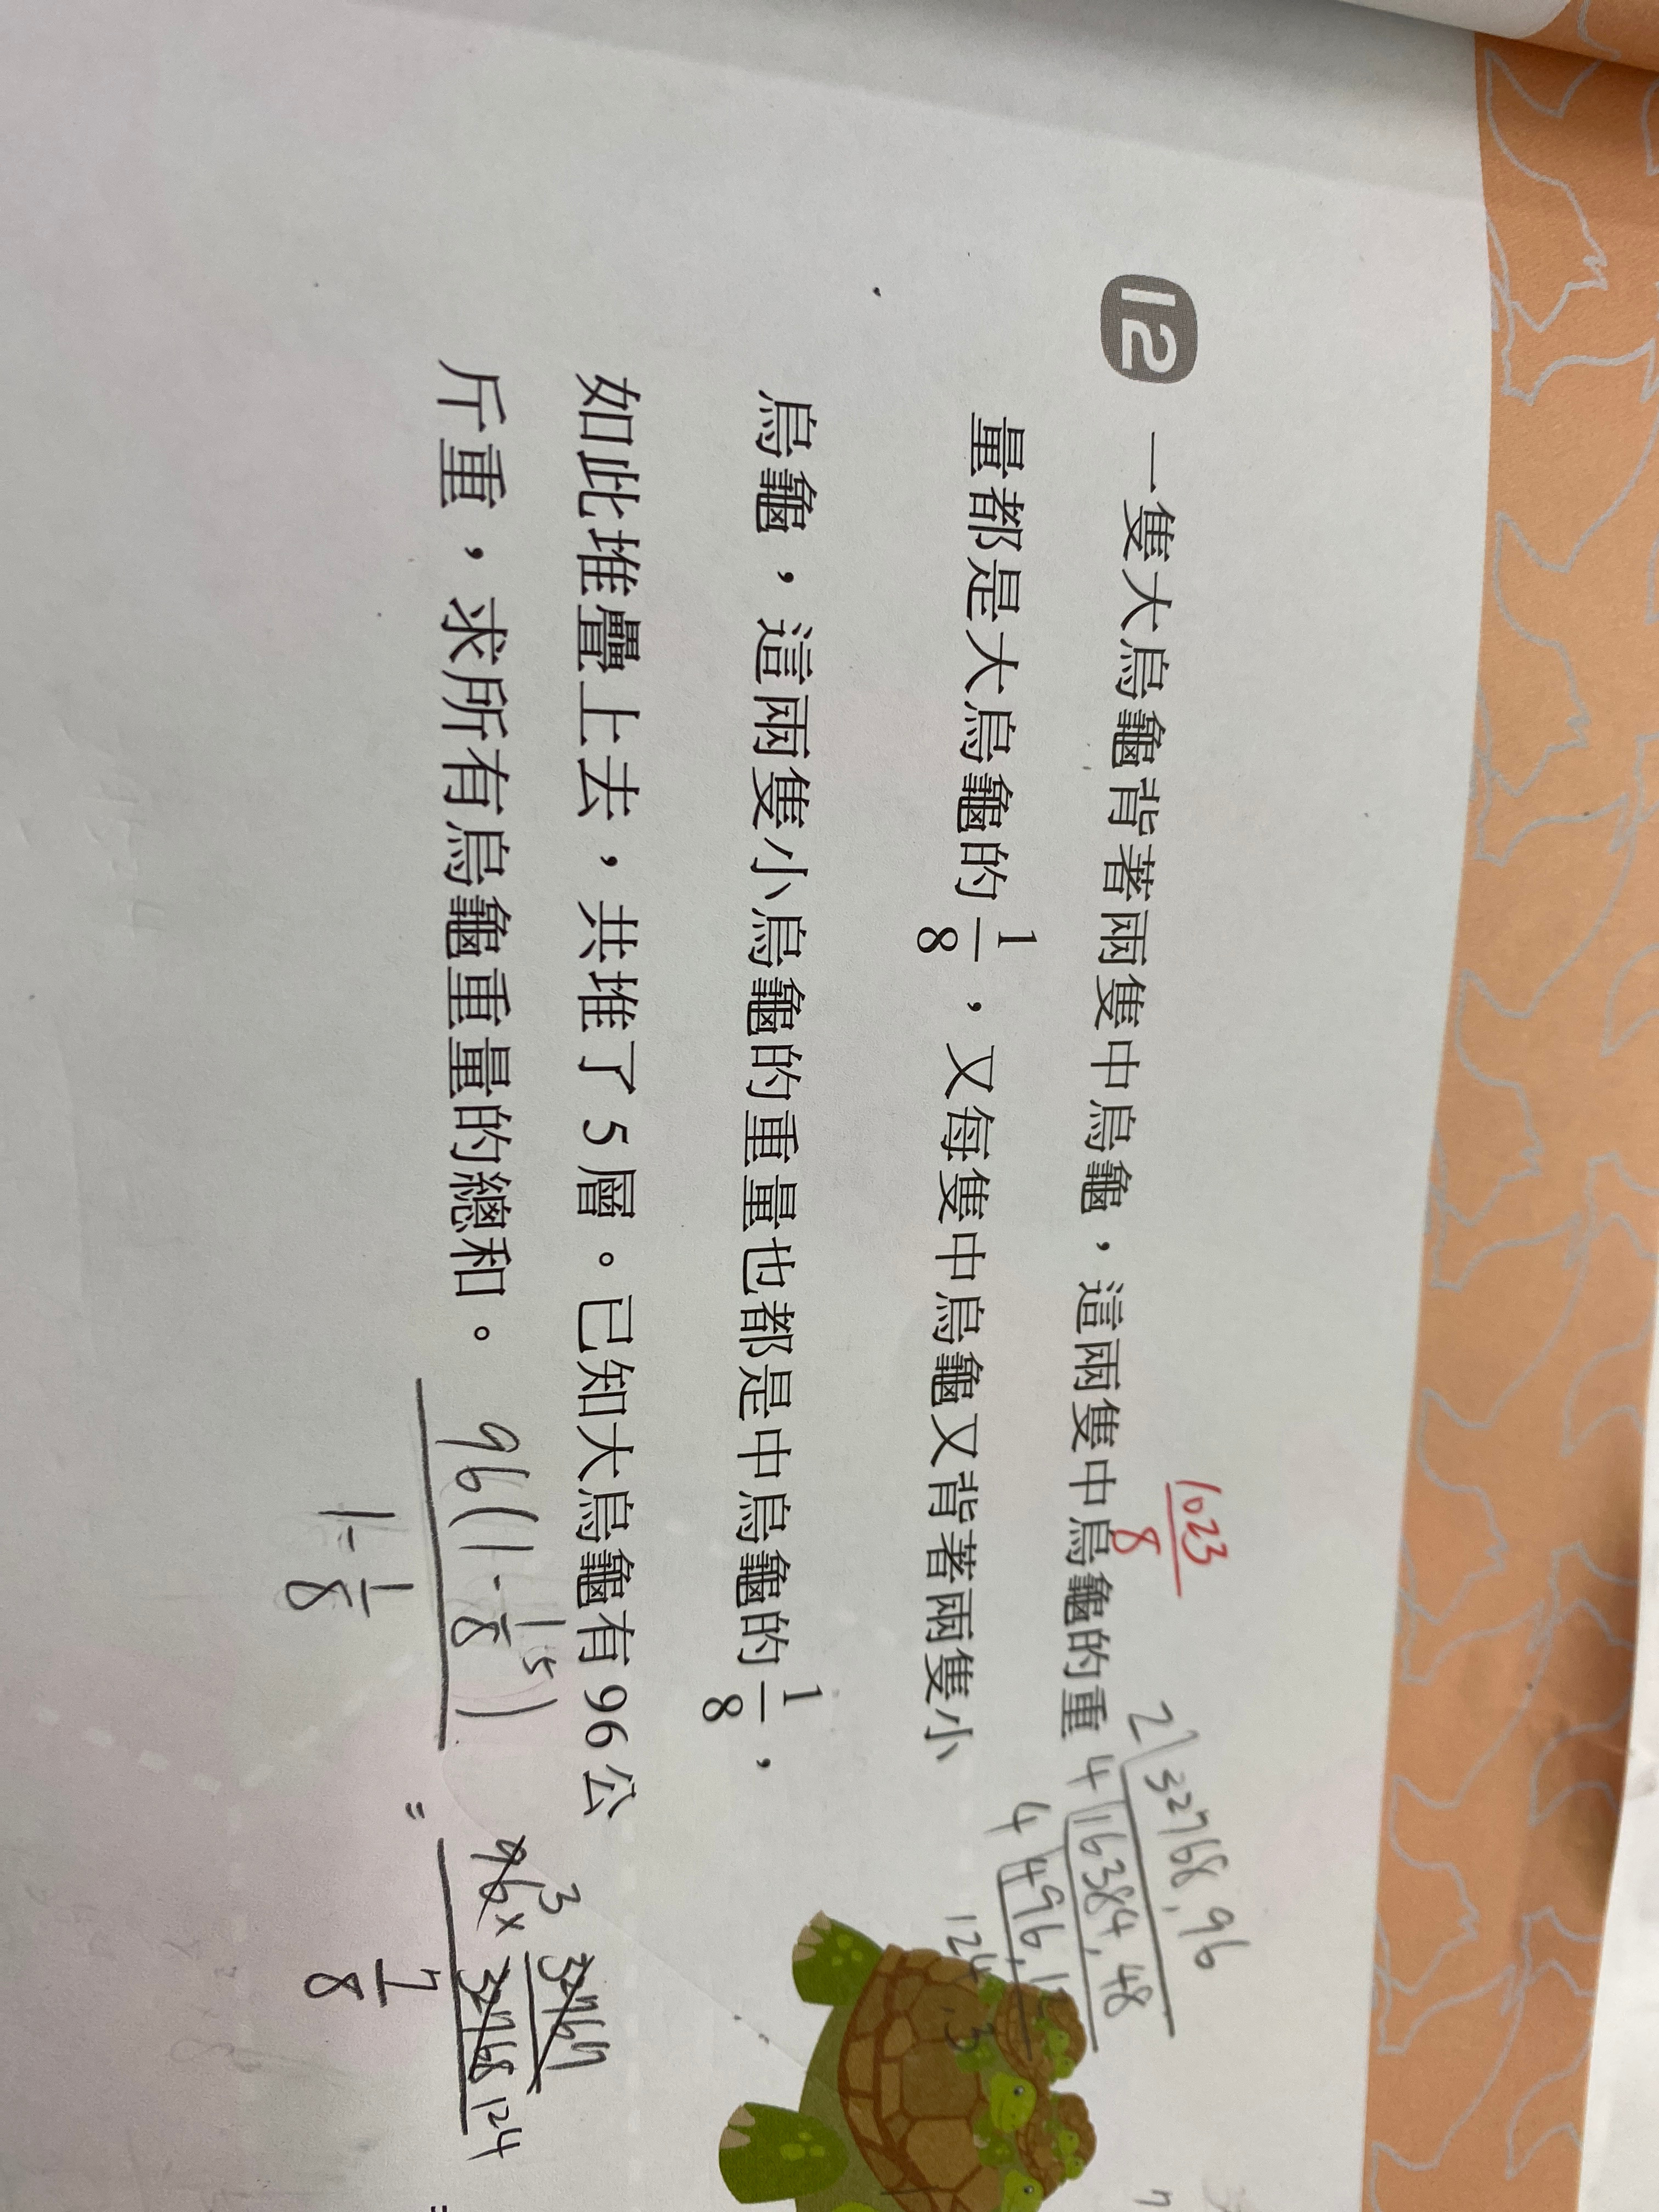 12 一隻大烏龜背著兩隻中烏龜，這兩隻中烏龜的重
量都是大烏龜的1/8，又每隻中烏龜又背著兩隻小
烏龜，這兩隻小烏龜的重量也都是中烏龜的1/8，
如此堆疊上去，共堆了5層。已知大烏龜有96公
斤重，求所有烏龜重量的總和。
1023/8
2 32768, 96
4 16384, 48
4 496, 12
124 3
96(1-1/8^5)
1-1/8
= 96 3 × 32767/32768 124
7/8
=